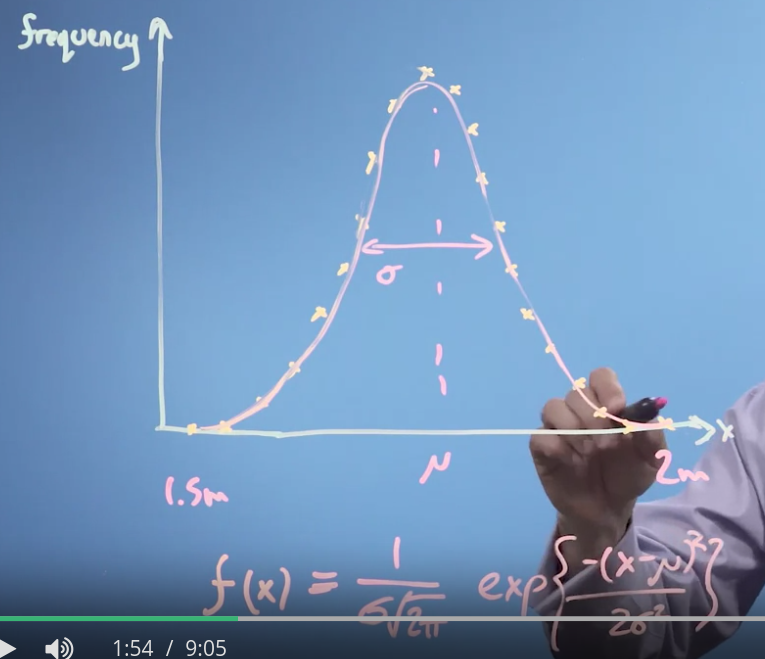 frequency
σ
x
1.5m
μ
2m
f(x) = 1/(σ√2π) exp{-(x-μ)²/2σ²}
1:54 / 9:05